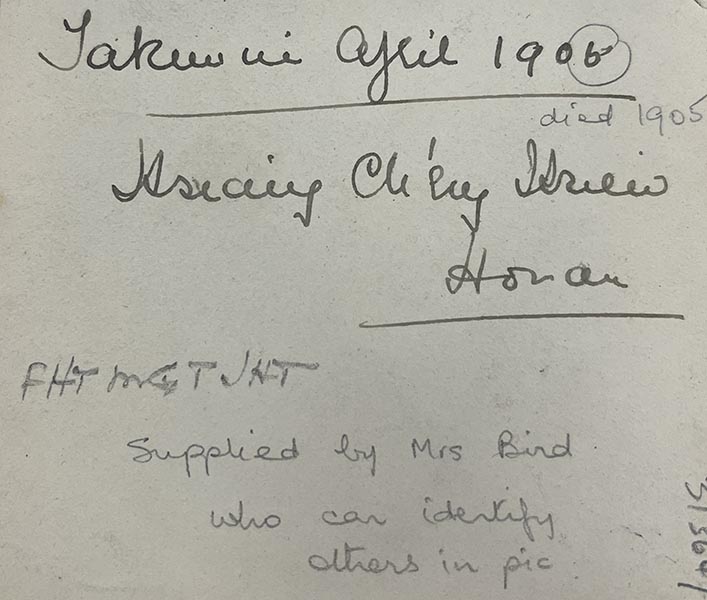 Taken in April 1905
died 1905
Hsiang Ch'eng Hsien
Honan
FHT MGT JHT
Supplied by Mrs Bird
who can identify
others in pic